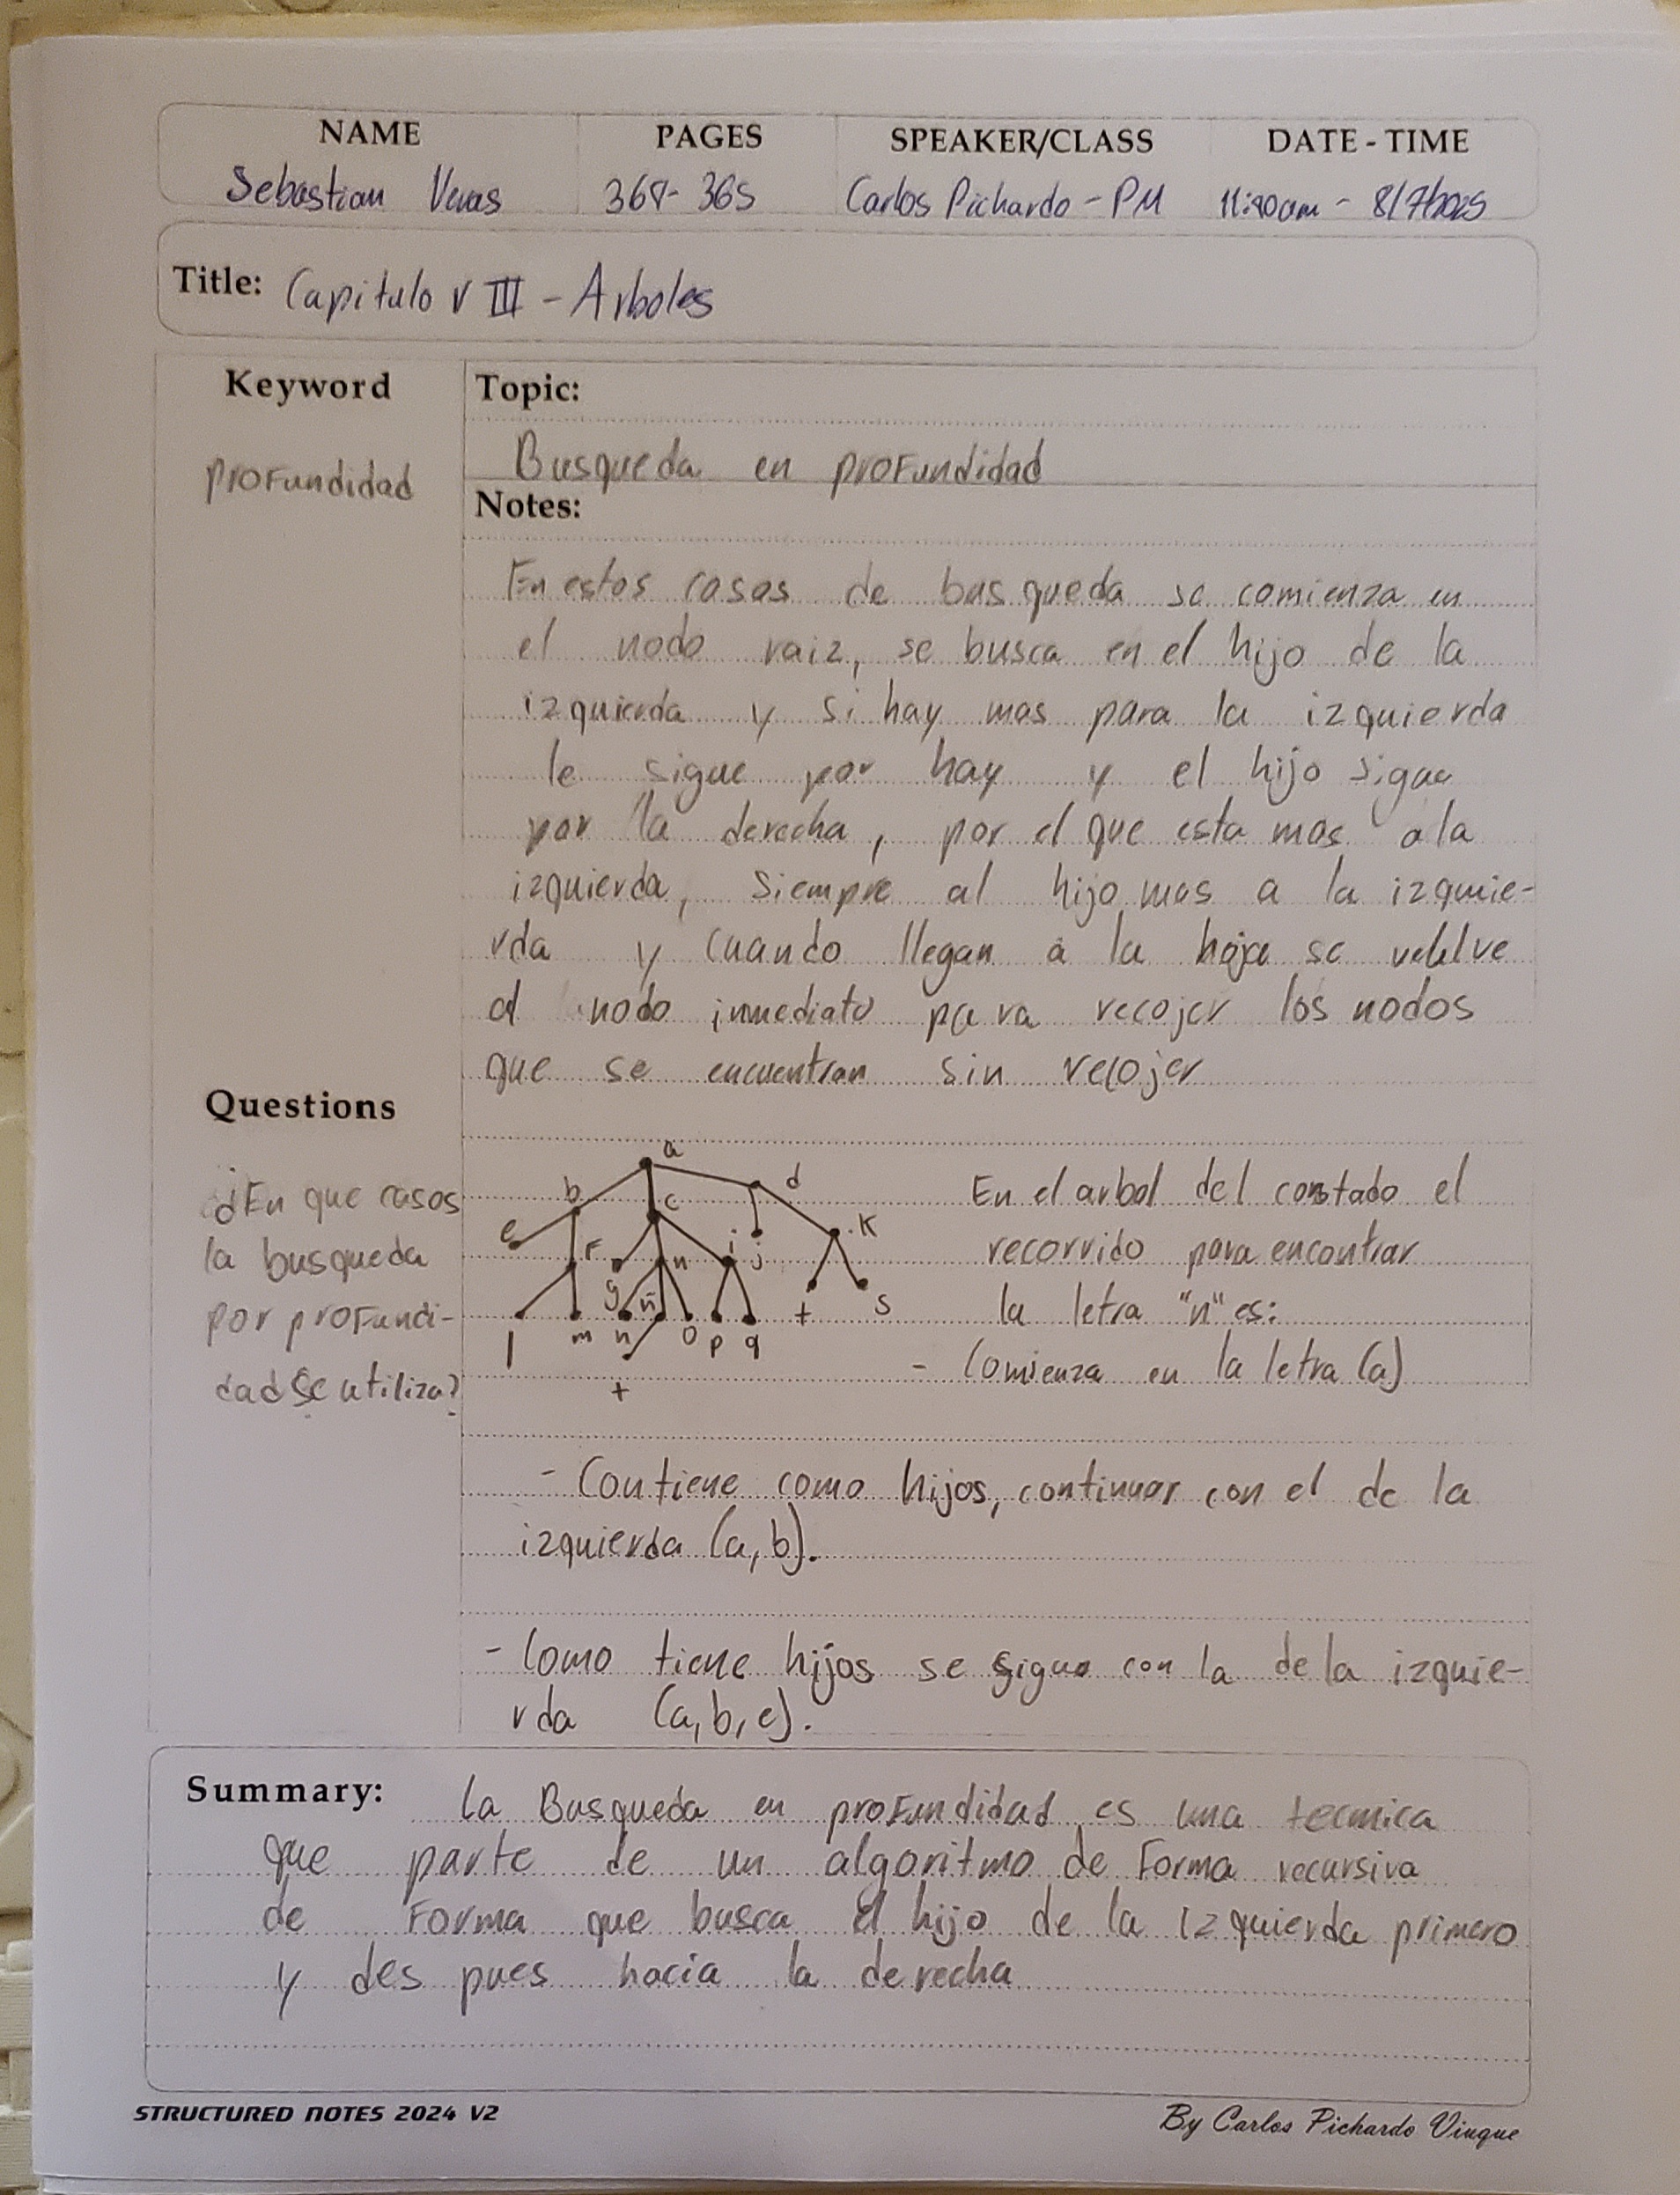 NAME PAGES SPEAKER/CLASS DATE - TIME
Sebastian Veras 364- 365 Carlos Pichardo - PM 11:40am - 8/7/2025
Title: Capitulo VIII - Arboles
Keyword
profundidad
Topic:
Busqueda en profundidad
Notes:
En estos casos de busqueda se comienza en
el nodo raiz, se busca en el hijo de la
izquierda y si hay mas para la izquierda
le sigue por hay y el hijo sigue
por la derecha, por el que esta mas a la
izquierda, siempre al hijo mas a la izquie-
rda y cuando llegan a la hoja se vuelve
al nodo inmediato para recojer los nodos
que se encuentran sin recojer
Questions
¿En que casos
la busqueda
por profundi-
dad se utiliza?
a
b c d
e f g n i j K
l m n ñ o p q t s
+
En el arbol del constado el
recorrido para encontrar
la letra "n" es:
- Comienza en la letra (a)
- Contiene como hijos, continuar con el de la
izquierda (a, b).
- Como tiene hijos se sigue con la de la izquie-
rda (a, b, e).
Summary: La Busqueda en profundidad es una tecnica
que parte de un algoritmo de forma recursiva
de forma que busca el hijo de la izquierda primero
y des pues hacia la derecha
STRUCTURED NOTES 2024 V2
By Carlos Pichardo Viuque